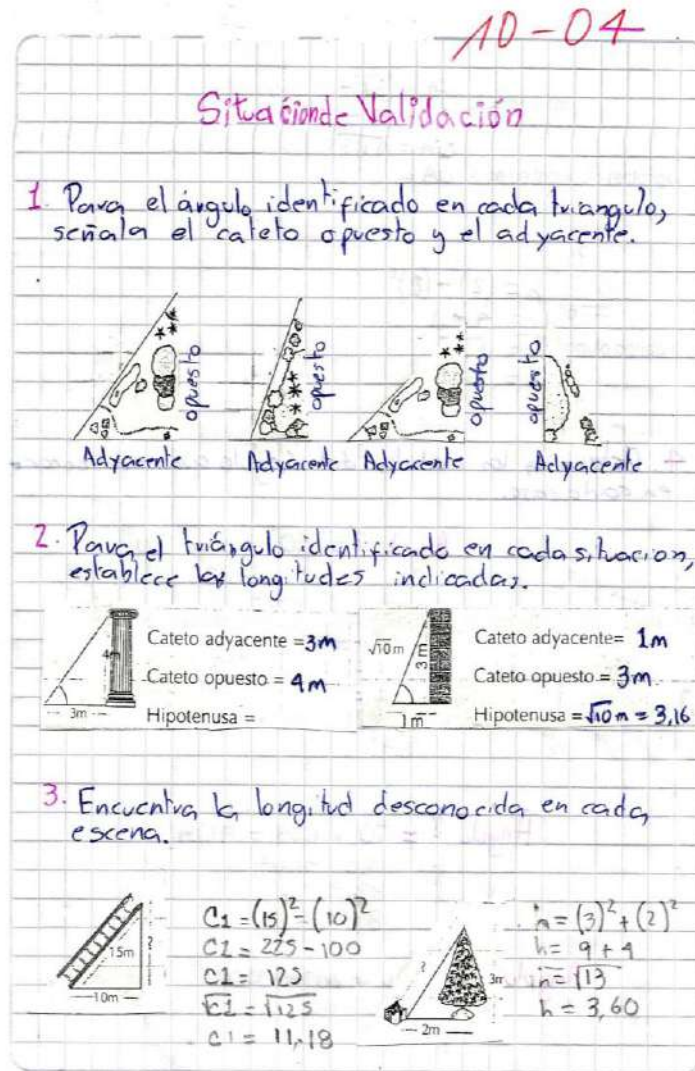 10-04
Situaciónde Validación
1. Para el ángulo identificado en cada triangulo,
señala el cateto opuesto y el adyacente.
opuesto opuesto opuesto opuesto
Adyacente Adyacente Adyacente Adyacente
2. Para el triángulo identificado en cada situacion,
establece las longitudes indicadas.
4m
3m
Cateto adyacente = 3m
Cateto opuesto = 4m
Hipotenusa =
√10 m
3m
1m
Cateto adyacente= 1m
Cateto opuesto = 3m
Hipotenusa = √10 m = 3,16
3. Encuentra la longitud desconocida en cada
escena.
15m
?
10m
C1 = (15)² - (10)²
C1 = 225 - 100
C1 = 125
√C1 = √125
C1 = 11,18
?
3m
2m
h = (3)² + (2)²
h = 9 + 4
h = √13
h = 3,60